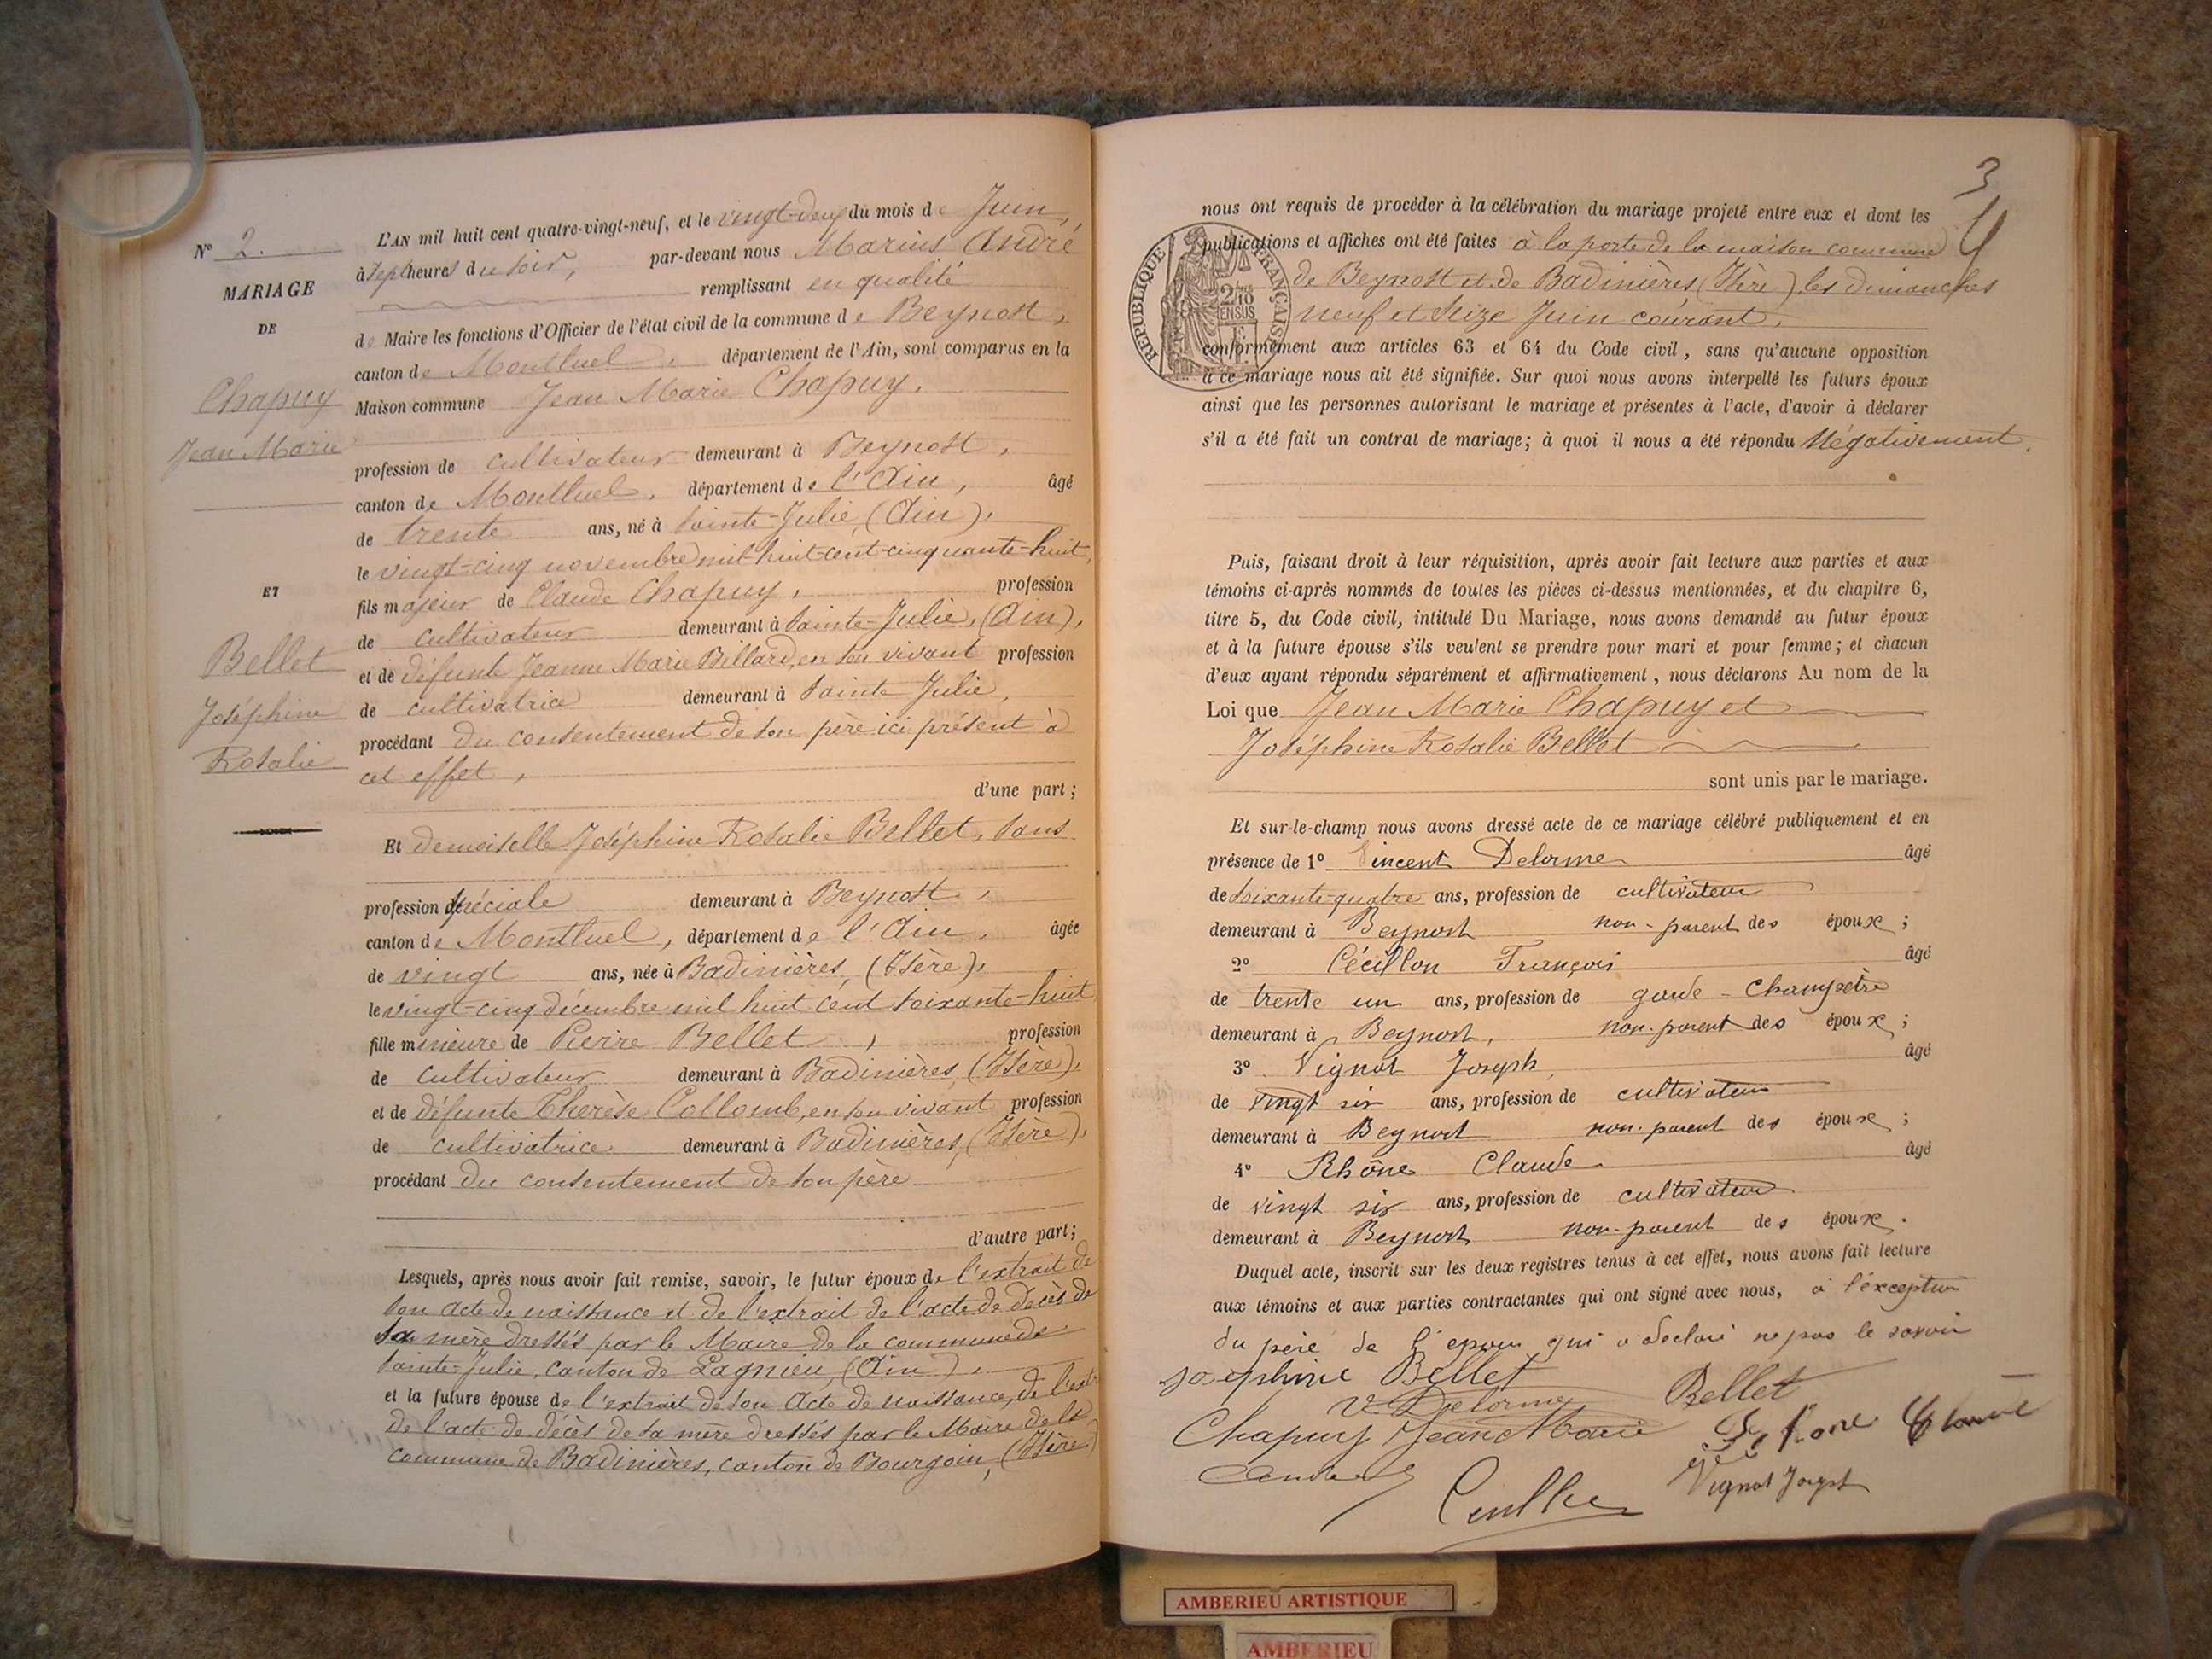 N° 2.
MARIAGE
DE
Chapuy
Jean Marie
ET
Bellet
Joséphine
Rosalie
L'AN mil huit cent quatre-vingt-neuf, et le vingt-deux du mois de Juin,
à sept heures du soir, par-devant nous Marius André
remplissant en qualité
de Maire les fonctions d'Officier de l'état civil de la commune de Beynost,
canton de Montluel, département de l'Ain, sont comparus en la
Maison commune Jean Marie Chapuy,
profession de cultivateur demeurant à Beynost,
canton de Montluel, département de l'Ain, âgé
de trente ans, né à Sainte-Julie, (Ain),
le vingt-cinq novembre mil-huit-cent-cinquante-huit,
fils majeur de Claude Chapuy, profession
de cultivateur demeurant à Sainte-Julie, (Ain),
et de défunte Jeanne Marie Bellard, en son vivant profession
de cultivatrice demeurant à Sainte Julie,
procédant du consentement de son père ici présent à
cet effet,
d'une part;
Et demoiselle Joséphine Rosalie Bellet, sans
profession spéciale demeurant à Beynost,
canton de Montluel, département de l'Ain, âgée
de vingt ans, née à Badinières, (Isère),
le vingt-cinq décembre mil huit cent soixante-huit
fille mineure de Pierre Bellet, profession
de cultivateur demeurant à Badinières, (Isère),
et de défunte Therèse Collomb, en son vivant profession
de cultivatrice demeurant à Badinières, (Isère),
procédant du consentement de son père
d'autre part;
Lesquels, après nous avoir fait remise, savoir, le futur époux de l'extrait de
son acte de naissance et de l'extrait de l'acte de décès de
sa mère dressés par le Maire de la commune de
Sainte-Julie, canton de Lagnieu, (Ain),
et la future épouse de l'extrait de son acte de naissance, de l'extr
de l'acte de décès de sa mère dressés par le Maire de la
commune de Badinières, canton de Bourgoin, (Isère)
3
nous ont requis de procéder à la célébration du mariage projeté entre eux et dont les
publications et affiches ont été faites à la porte de la maison commune
de Beynost et de Badinières (Isère) les dimanches
neuf et seize Juin courant,
RÉPUBLIQUE FRANÇAISE
2/10
EN SUS
conformément aux articles 63 et 64 du Code civil, sans qu'aucune opposition
à ce mariage nous ait été signifiée. Sur quoi nous avons interpellé les futurs époux
ainsi que les personnes autorisant le mariage et présentes à l'acte, d'avoir à déclarer
s'il a été fait un contrat de mariage; à quoi il nous a été répondu Négativement.
Puis, faisant droit à leur réquisition, après avoir fait lecture aux parties et aux
témoins ci-après nommés de toutes les pièces ci-dessus mentionnées, et du chapitre 6,
titre 5, du Code civil, intitulé Du Mariage, nous avons demandé au futur époux
et à la future épouse s'ils veulent se prendre pour mari et pour femme; et chacun
d'eux ayant répondu séparément et affirmativement, nous déclarons Au nom de la
Loi que Jean Marie Chapuy et
Joséphine Rosalie Bellet
sont unis par le mariage.
Et sur-le-champ nous avons dressé acte de ce mariage célébré publiquement et en
présence de 1° Vincent Delorme âgé
de soixante-quatre ans, profession de cultivateur
demeurant à Beynost non-parent des époux;
2° Cécillon François âgé
de trente un ans, profession de garde-Champêtre
demeurant à Beynost, non-parent des époux;
3° Vignat Joseph, âgé
de vingt six ans, profession de cultivateur
demeurant à Beynost non-parent des époux;
4° Rhône Claude âgé
de vingt six ans, profession de cultivateur
demeurant à Beynost non-parent des époux.
Duquel acte, inscrit sur les deux registres tenus à cet effet, nous avons fait lecture
aux témoins et aux parties contractantes qui ont signé avec nous, à l'éxception
du père de l'epoux qui a declaré ne pas le savoir
josephine Bellet
V Delorme Bellet
Chapuy Jean Marie
Vignat Joseph
AMBERIEU ARTISTIQUE
AMBERIEU